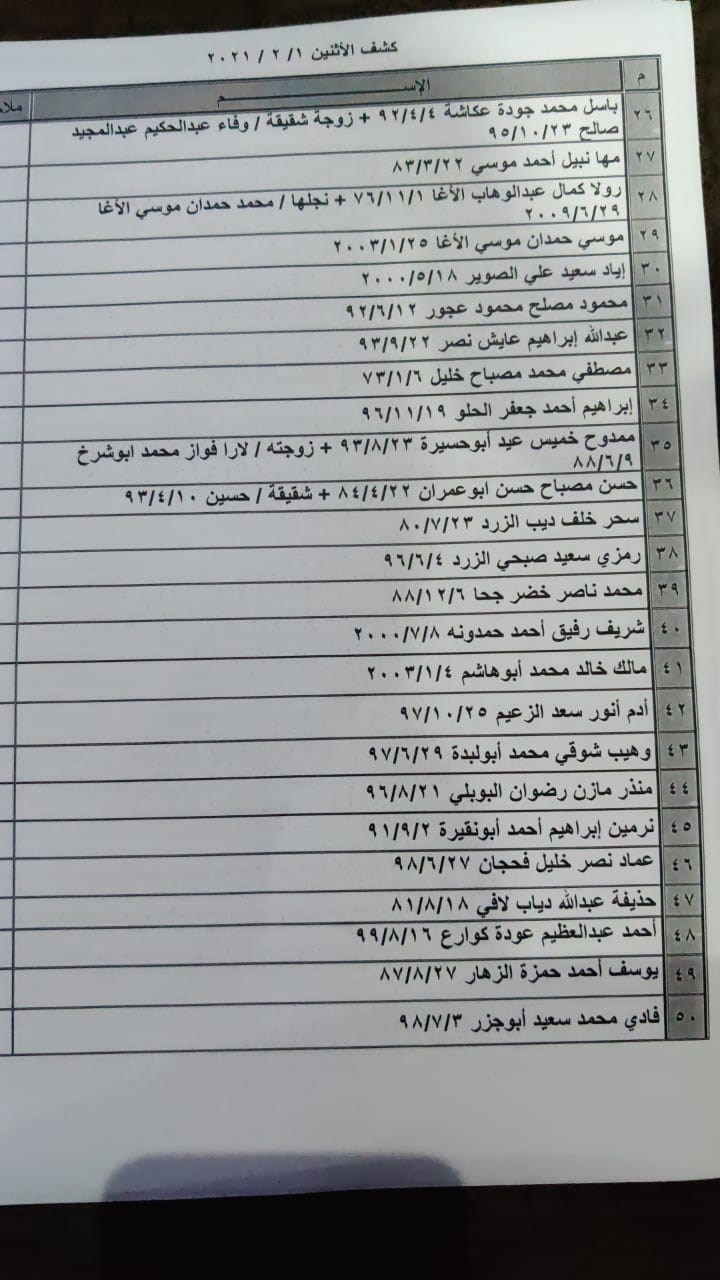 كشف الأثنين ٢٠٢١ / ٢ /١
م الإســــــــــــم ملا
٢٦ باسل محمد جودة عكاشة ٩٢/٤/٤ + زوجة شقيقة / وفاء عبدالحكيم عبدالمجيد
صالح ٩٥/١٠/٢٣
٢٧ مها نبيل أحمد موسي ٨٣/٣/٢٢
٢٨ رولا كمال عبدالوهاب الأغا ٧٦/١١/١ + نجلها / محمد حمدان موسي الأغا
٢٠٠٩/٦/٢٩
٢٩ موسي حمدان موسي الأغا ٢٠٠٣/١/٢٥
٣٠ إياد سعيد علي الصوير ٢٠٠٠/٥/١٨
٣١ محمود مصلح محمود عجور ٩٢/٦/١٢
٣٢ عبدالله إبراهيم عايش نصر ٩٣/٩/٢٢
٣٣ مصطفي محمد مصباح خليل ٧٣/١/٦
٣٤ إبراهيم أحمد جعفر الحلو ٩٦/١١/١٩
٣٥ ممدوح خميس عيد أبوحسيرة ٩٣/٨/٢٣ + زوجته / لارا فواز محمد ابوشرخ
٨٨/٦/٩
٣٦ حسن مصباح حسن ابوعمران ٨٤/٤/٢٢ + شقيقة / حسين ٩٣/٤/١٠
٣٧ سحر خلف ديب الزرد ٨٠/٧/٢٣
٣٨ رمزي سعيد صبحي الزرد ٩٦/٦/٤
٣٩ محمد ناصر خضر جحا ٨٨/١٢/٦
٤٠ شريف رفيق أحمد حمدونه ٢٠٠٠/٧/٨
٤١ مالك خالد محمد أبوهاشم ٢٠٠٣/١/٤
٤٢ أدم أنور سعد الزعيم ٩٧/١٠/٢٥
٤٣ وهيب شوقي محمد أبولبدة ٩٧/٦/٢٩
٤٤ منذر مازن رضوان البوبلي ٩٦/٨/٢١
٤٥ نرمين إبراهيم أحمد أبونقيرة ٩١/٩/٢
٤٦ عماد نصر خليل فحجان ٩٨/٦/٢٧
٤٧ حذيفة عبدالله دياب لافي ٨١/٨/١٨
٤٨ أحمد عبدالعظيم عودة كوارع ٩٩/٨/١٦
٤٩ يوسف أحمد حمزة الزهار ٨٧/٨/٢٧
٥٠ فادي محمد سعيد أبوجزر ٩٨/٧/٣